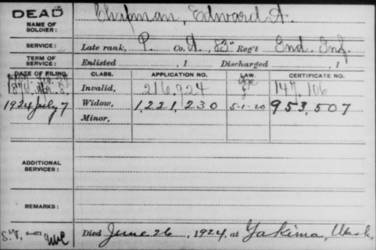 DEAD
NAME OF SOLDIER: Chapman, Edward A.
SERVICE: Late rank, P. Co. A, Reg't Ind. Inf.
TERM OF SERVICE: Enlisted , 1 Discharged , 1
DATE OF FILING. CLASS. APPLICATION NO. LAW. CERTIFICATE NO.
Invalid, 216,924 147,106
1924 July 7 Widow, 1,221,230 5-1-20 953,507
Minor,
ADDITIONAL SERVICES:
REMARKS:
Died June 26, 1924, at Yakima, Wash.